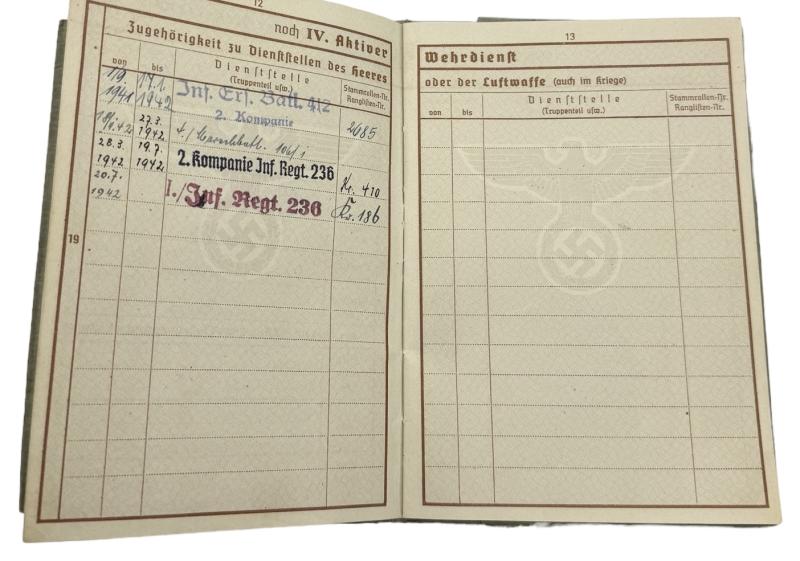 12
noch IV. Aktiver
Zugehörigkeit zu Dienststellen des Heeres
von bis Dienststelle (Truppenteil usw.) Stammrollen-Nr. Ranglisten-Nr.
1941 17.1. 1942 Inf. Ers. Batl. 412 2. Kompanie 2685
27.3. 1942
28.3. 1942 19.7. 1942 2. Kompanie Inf. Regt. 236 Kr. 410
20.7. 1942 I./Inf. Regt. 236 Kr. 186
19
13
Wehrdienst
oder der Luftwaffe (auch im Kriege)
von bis Dienststelle (Truppenteil usw.) Stammrollen-Nr. Ranglisten-Nr.